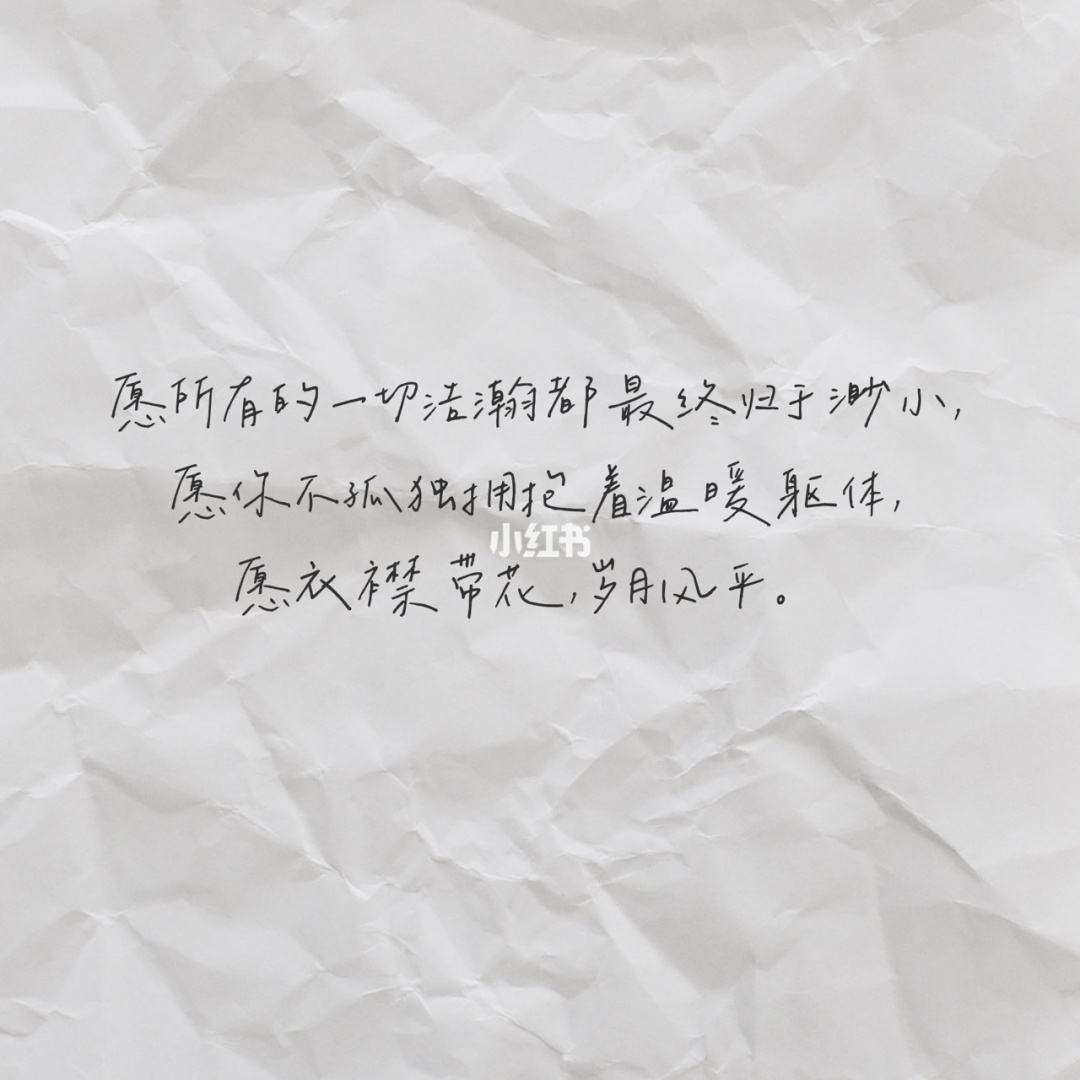 愿所有的一切浩瀚都最终归于渺小,
愿你不孤独拥抱着温暖躯体,
小红书
愿衣襟带花,岁月风平。